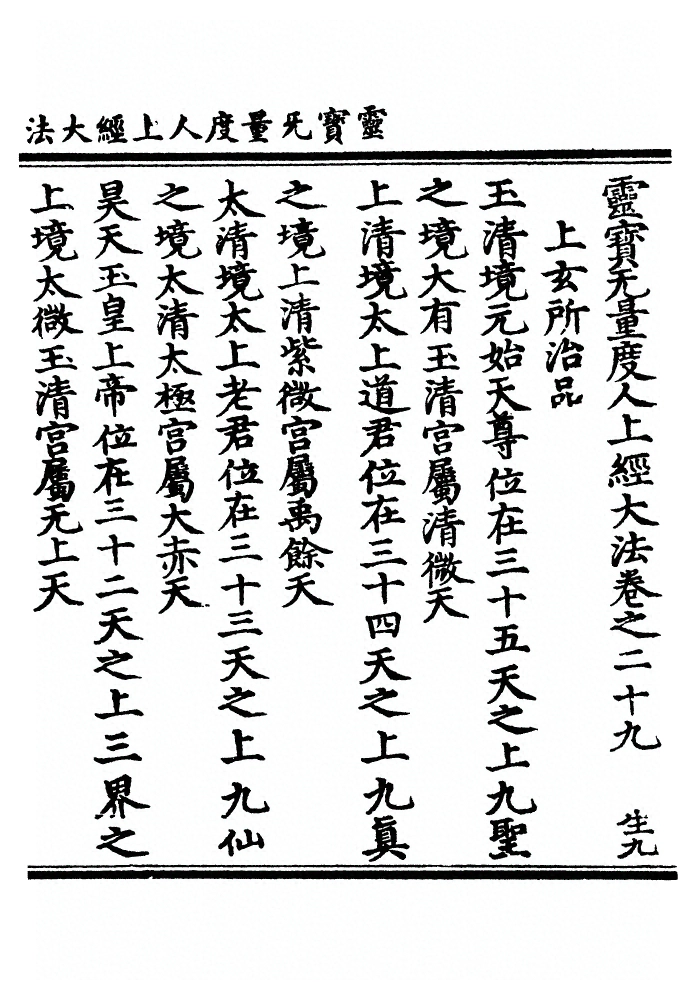 靈寶无量度人上經大法
靈寶无量度人上經大法卷之二十九 生九
上玄所治品
玉清境元始天尊位在三十五天之上九聖
之境大有玉清宮屬清微天
上清境太上道君位在三十四天之上九真
之境上清紫微宮屬禹餘天
太清境太上老君位在三十三天之上九仙
之境太清太極宮屬大赤天
昊天玉皇上帝位在三十二天之上三界之
上境太微玉清宮屬无上天